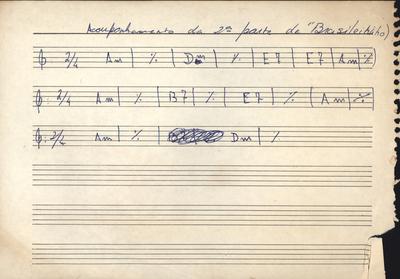 Acompanhamento da 2ª parte de "Brasileirinho)
2/4 Am | ٪ | Dm | ٪ | E7 | E7 | Am | ٪
2/4 Am | ٪ | B7 | ٪ | E7 | ٪ | Am | ٪
2/4 Am | ٪ | Dm | ٪